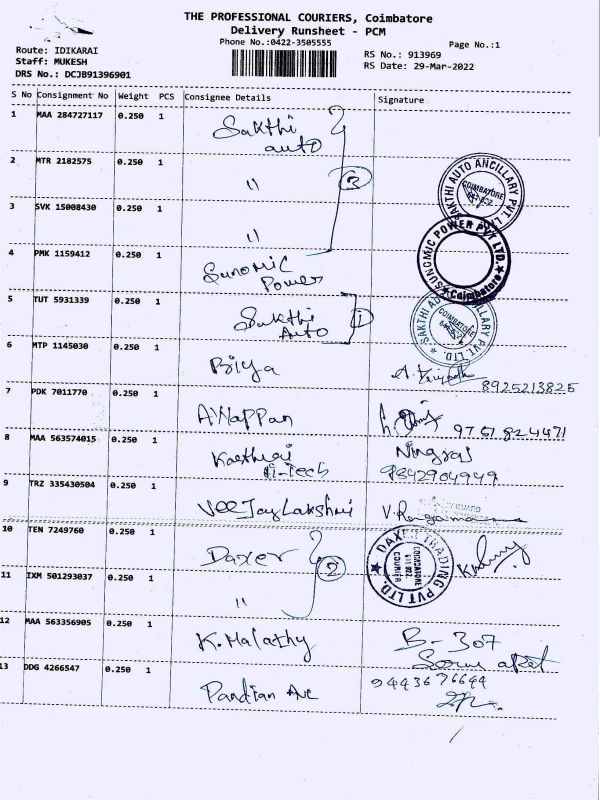 THE PROFESSIONAL COURIERS, Coimbatore
Delivery Runsheet - PCM
Phone No.:0422-3505555
Page No.:1
Route: IDIKARAI
Staff: MUKESH
DRS No.: DCJB91396901
RS No.: 913969
RS Date: 29-Mar-2022
S No Consignment No Weight PCS Consignee Details Signature
1 MAA 284727117 0.250 1 Sakthi auto
2 MTR 2182575 0.250 1 " 3
SAKTHI AUTO ANCILLARY PVT. LTD. COIMBATORE
3 SVK 15008430 0.250 1 "
SUNOMIC POWER PVT LTD. Coimbatore
4 PMK 1159412 0.250 1 Sunomic Power
5 TUT 5931339 0.250 1 Sakthi Auto 1
SAKTHI AUTO ANCILLARY PVT. LTD. COIMBATORE
6 MTP 1145030 0.250 1 Biya
8925213825
7 PDK 7011770 0.250 1 97518 24471
8 MAA 563574015 0.250 1 Hi-Tech Ningraj
9842904949
9 TRZ 335430504 0.250 1 VeeJayLakshmi
10 TEN 7249760 0.250 1 Daxer 2
DAXER TRADING PVT LTD. COIMBATORE COURIER
11 IXM 501293037 0.250 1 "
12 MAA 563356905 0.250 1 K. Malathy B-307
13 DDG 4266547 0.250 1 Pandian Ave 9443676644